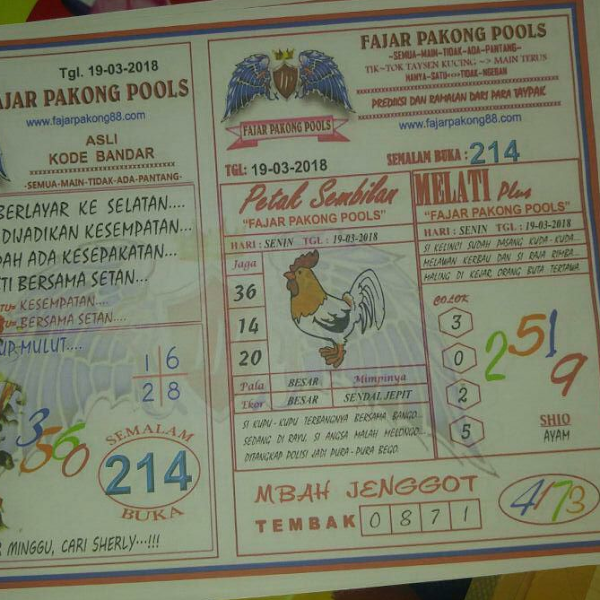 Tgl. 19-03-2018
AJAR PAKONG POOLS
www.fajarpakong88.com
ASLI
KODE BANDAR
-SEMUA-MAIN-TIDAK-ADA-PANTANG-
BERLAYAR KE SELATAN....
DIJADIKAN KESEMPATAN...
DAH ADA KESEPAKATAN...
TI BERSAMA SETAN...
TU= KESEMPATAN....
= BERSAMA SETAN....
UP-MULUT....
16
28
3560
SEMALAM
214
BUKA
MINGGU, CARI SHERLY~!!!
FAJAR PAKONG POOLS
-SEMUA-MAIN-TIDAK-ADA-PANTANG-
TIK-TOK TAYSEN KUCING ~> MAIN TERUS
HANYA-SATU=>>TIDAK-NGEBAN
PREDIKSI DAN RAMALAN DARI PARA TAYPAK
www.fajarpakong88.com
FAJAR PAKONG POOLS
TGL: 19-03-2018
SEMALAM BUKA : 214
Petak Sembilan
"FAJAR PAKONG POOLS"
HARI : SENIN TGL : 19-03-2018
Jaga
36
14
20
Pala BESAR Mimpinya
Ekor BESAR SENDAL JEPIT
SI KUPU - KUPU TERBANGNYA BERSAMA BANGO...
SEDANG DI RAYU, SI ANGSA MALAH MELONGO...
DITANGKAP POLISI JADI PURA - PURA BEGO.
MELATI Plus
"FAJAR PAKONG POOLS"
HARI : SENIN TGL : 19-03-2018
SI KELINCI SUDAH PASANG KUDA - KUDA...
MELAWAN KERBAU DAN SI RAJA RIMBA...
MALING DI KEJAR ORANG BUTA TERTAWA.
COLOK
3
0
2
5
2519
SHIO
AYAM
MBAH JENGGOT
TEMBAK 0871
4173